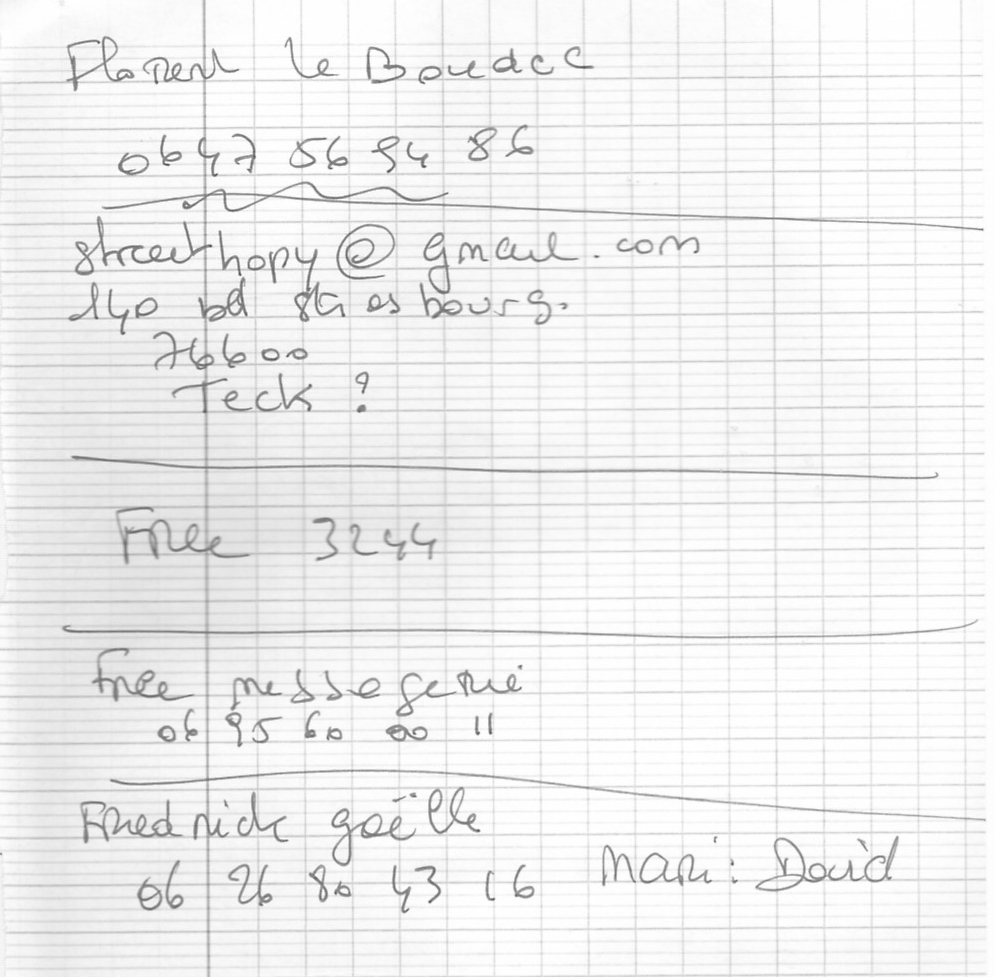 Florent le Bouder
06 47 56 94 86
streethopy@gmail.com
140 bd strasbourg.
76600
Teck ?
Free 3244
Free messagerie
06 95 60 00 11
Fredrick gaëlle
06 26 80 43 16 mari : David